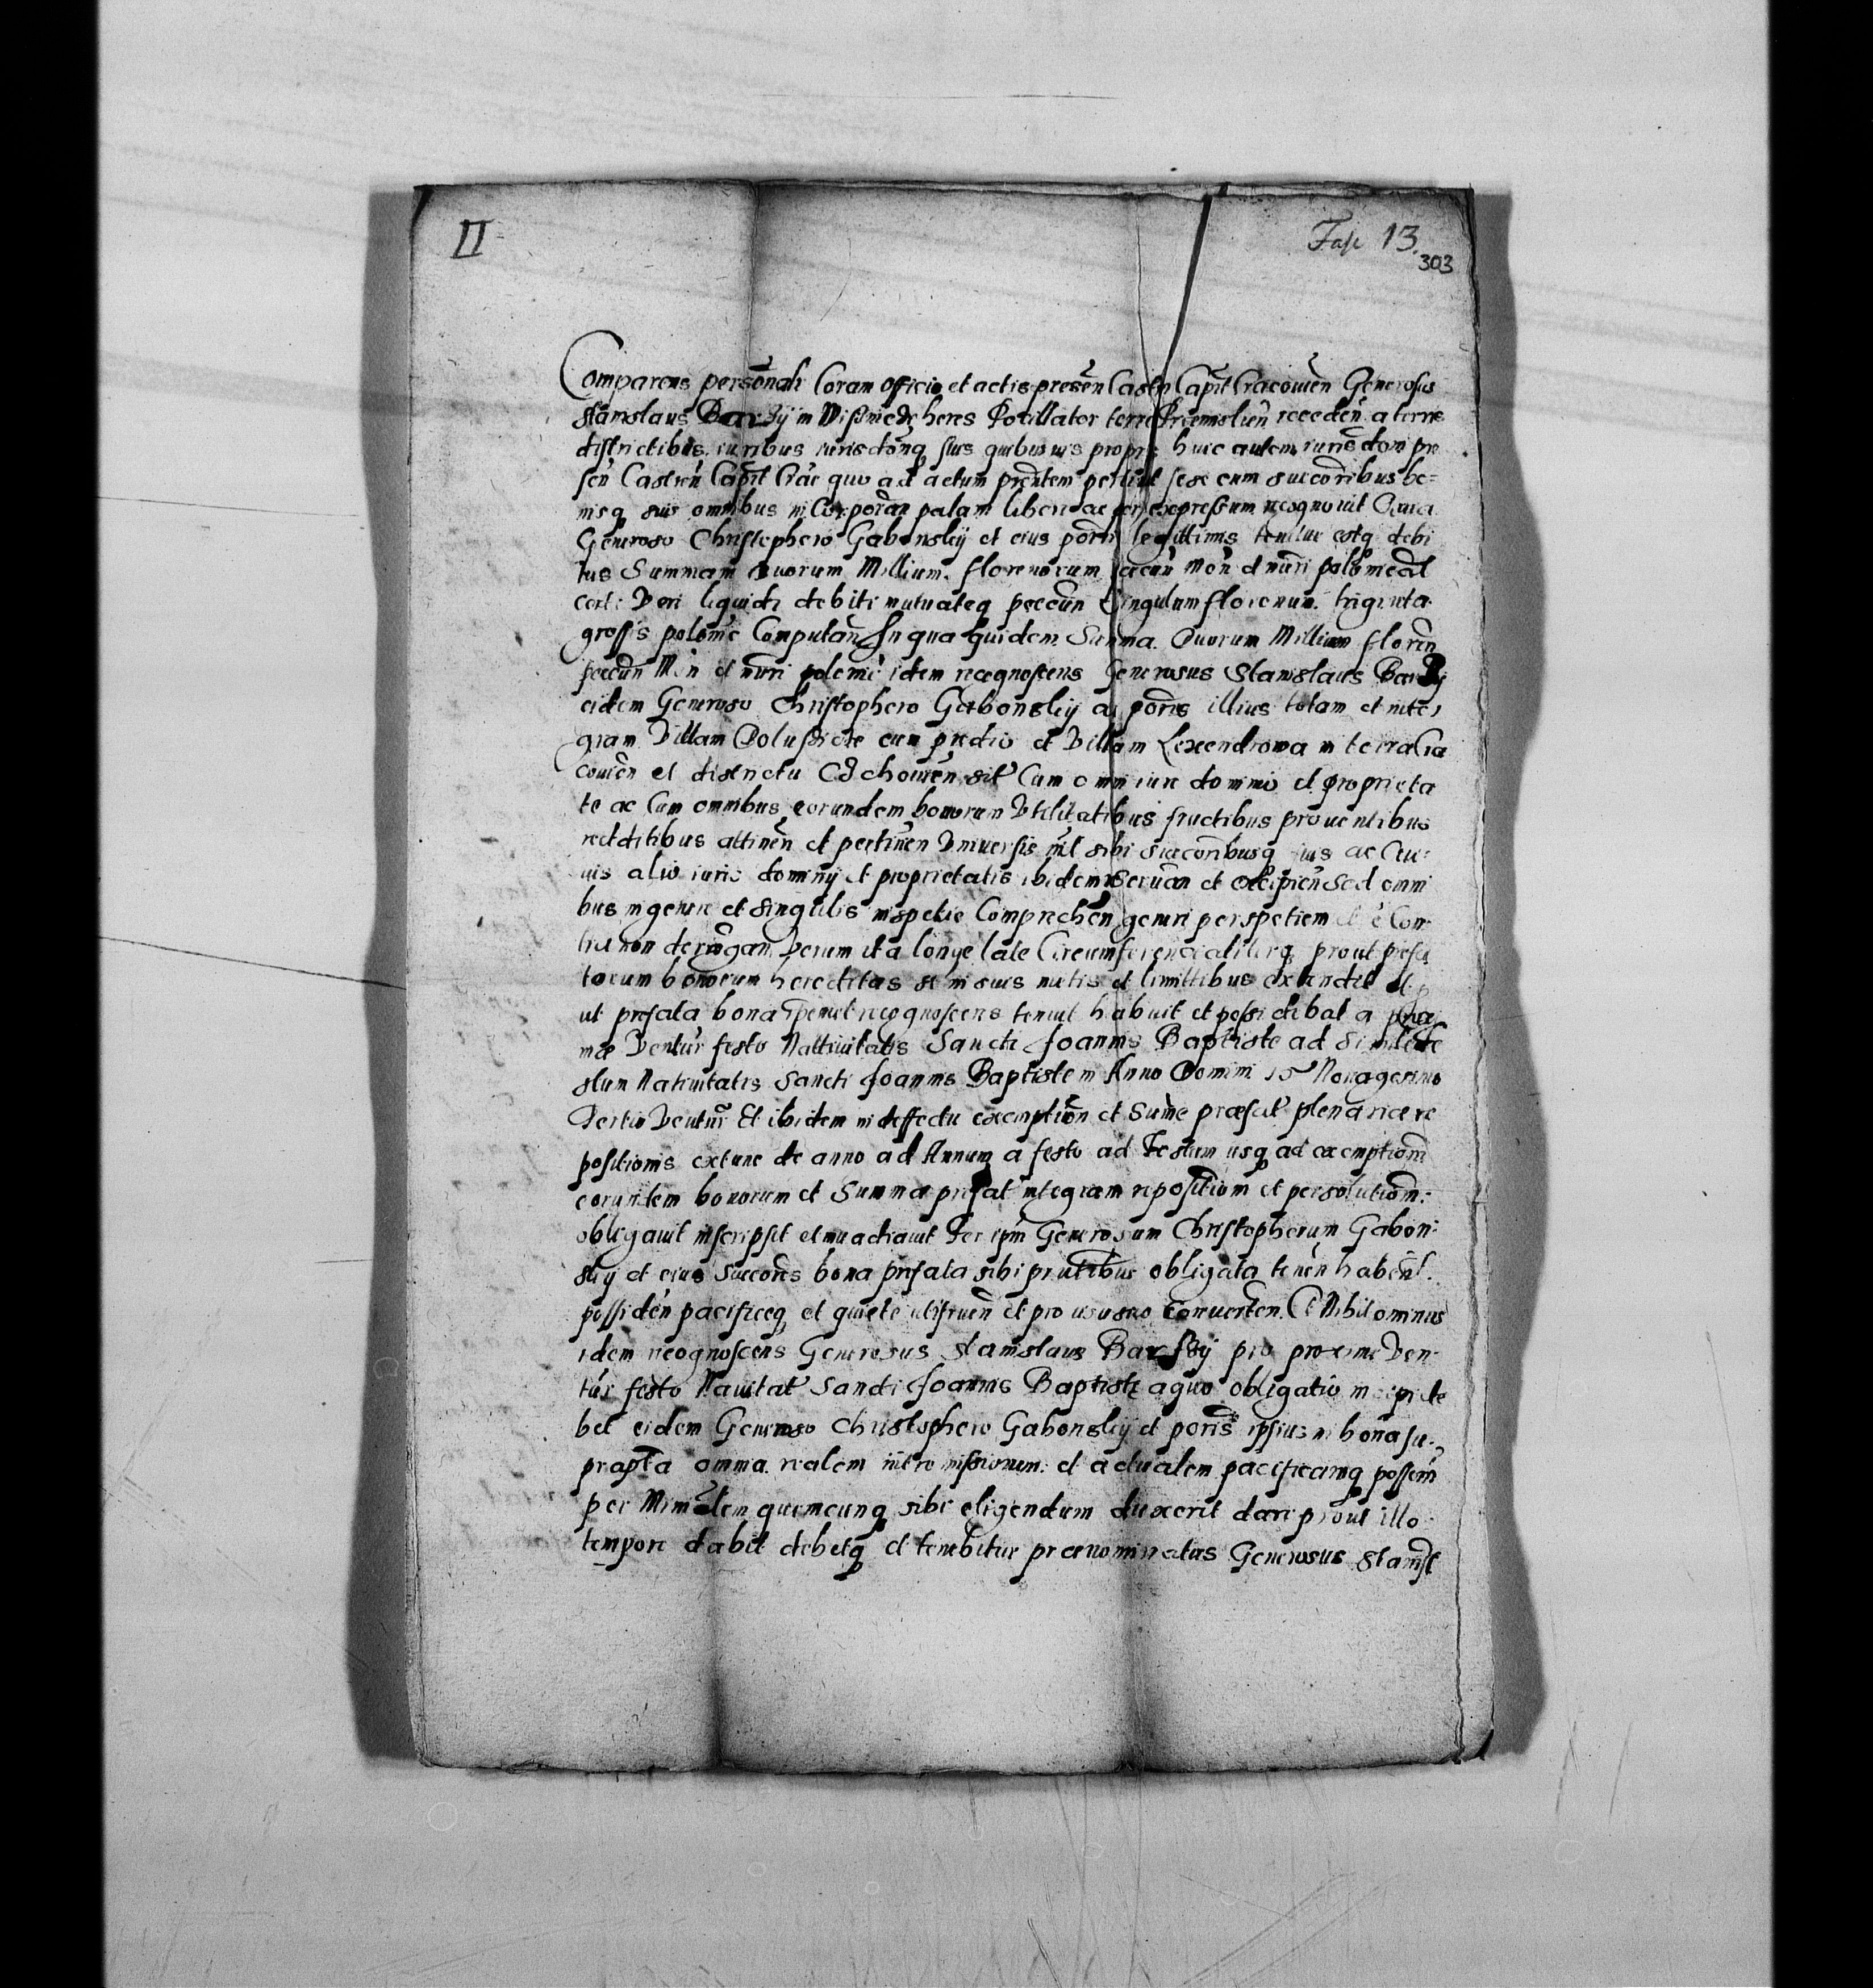 II
Fasc 13.
303
Comparens personalr Coram officio et actis presen Castren Capit Cracouien Generosus
Stanislaus Barzy in Heres terre Premislien receden a terris
districtibus iuribus iurisdonq suis quibusuis proprijs huic autem iurisdoni pre
sen Castren Capit Crac quo ad actum prntem pertinet sese cum succoribus bo=
nisq suis omnibus in Corporan palam libere ac per expressum recognouit Quia
Generoso Christophero Gabonskij et eius porib legittimis tenetur estq debi
tus Summam Duorum Millium Florenorum pecun Mon et nuri polonical
certi Veri liquidi debiti mutuateq peccun singulum florenum triginta
grossis polonic Computan In qua quidem Summa Duorum Millium floren
peccun Mon et nuri polonic idem recognoscens Generosus Stanislaus Barzij
eidem Generoso Christophero Gabonskij ac poris illius totam et inte,
gram Villam cum predio et Villam Lexendrowa in terra Cra
couien et districtu sit Cum omni iure dominio et proprieta
te ac Cum omnibus eorundem bonorum Vtilitatibus fructibus prouentibus
redditibus attinen et pertinen Vniuersis nil sibi succoribusq suis ac
uis alio iuris dominij et proprietatis ibidem reseruan et excipien Sed omni
bus in genere et singulis in spetie Comprehen generi per spetiem et e Con
tra non derogan Verum ita longe late Circumferencialiterq prout prefa
torum bonorum hereditas se in suis metis et limittibus extendit
ut prefata bona Ipemet recognoscens tenuit habuit et possidebat a proxi
me Ventur festo Nattiuitatis Sancti Joannis Baptiste ad Simile fe
stum Natiuitatis Sancti Joannis Baptiste in Anno Domini 15 Nonagesimo
Tertio Ventur Et ibidem in deffectu exemption et Sume præfat plenarie re
positionis extunc de anno ad Annum a festo ad Festum usq ad exemptiom
eorundem bonorum et Summæ prefat integram repositiom et persolutiom:
obligauit inscripsit et inuadiauit Per ipm Generosum Christopherum Gabon:
skij et eius Succores bona prefata sibi obligata tenen haben.
possiden pacificeq et quiete utifruen et pro usu suo conuerten. Et Nihilominus
idem recognoscens Generosus Stanislaus Barsky pro proxime Ven-
tur festo Nauitat Sancti Joannis Baptiste a quo obligatio incipi de
bet eidem Generoso Christophero Gabonskij et poris ipsius in bona su
prapta omnia realem intromissionem: et actualem pacificamq possem
per Minrialem quemcunq sibi eligendum duxerit dari prout illo
tempore dabit debetq et tenebitur prænominatus Generosus Stanisl